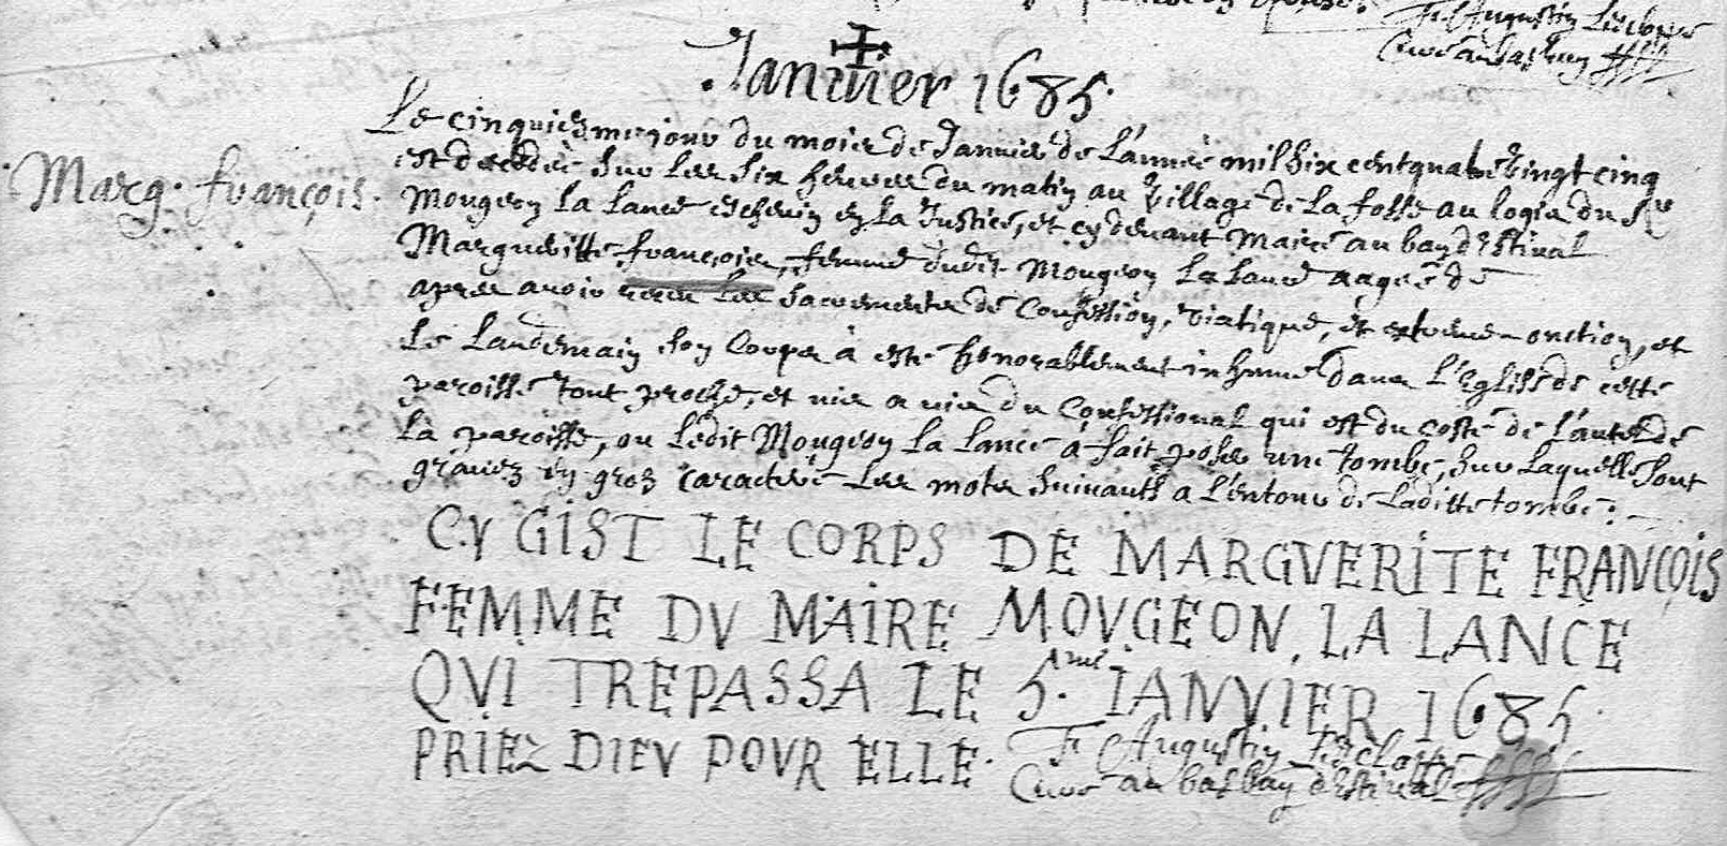 Fr Augustin
Curé au bas ban
Januier 1685.
Marg. françois.
Le cinquiesme jour du mois de Januier de L'année mil six cent quatre vingt cinq
est decedée sur les six heures du matin au village de La fosse au logis du Sr
Mougeon La Lance eschevin en La Justice, et cy deuant Maire au ban d'Estival
Margueritte françois, femme dudit Mougeon La Lance aagée de
apres auoir receu les sacrements de Confession, viatique, et extreme-onction, et
Le Landemain son Corps à esté honorablement inhumé dans L'Eglise de cette
paroisse tout proche, et vis a vis du Confessional qui est du costé de L'autel de
La paroisse, ou Ledit Mougeon La Lance à fait poser une tombe, sur Laquelle sont
grauez en gros caractere Les mots suiuants a L'entour de Laditte tombe:
CY GIST LE CORPS DE MARGVERITE FRANÇOIS
FEMME DV MAIRE MOVGEON, LA LANCE
QVI TREPASSA LE 5.me IANVIER 1685.
PRIEZ DIEV POVR ELLE.
Fr Augustin
Curé au bas ban d'Estival